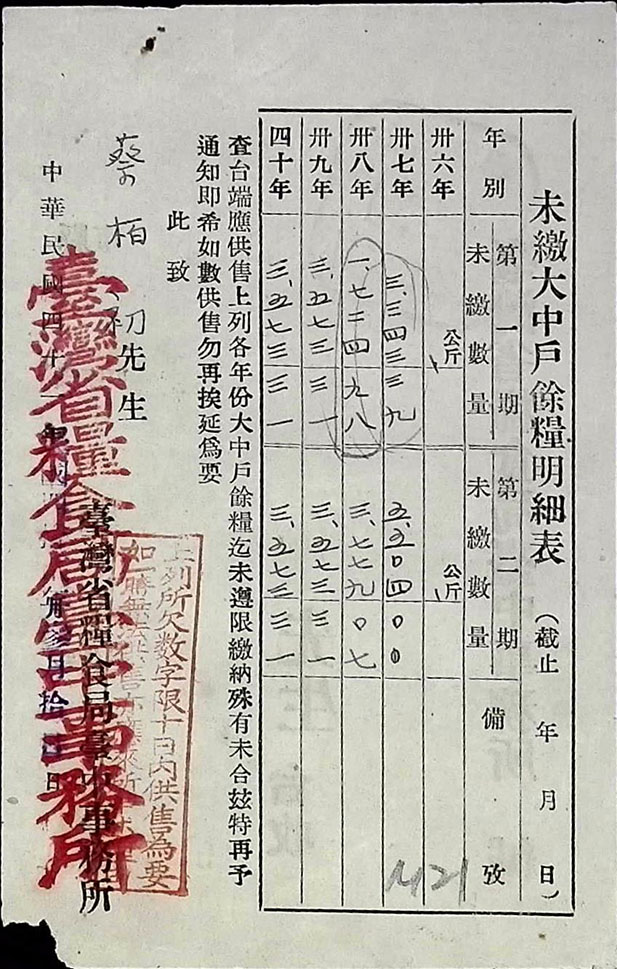 未繳大中戶餘糧明細表（截止　年　月　日）
年別　第一期未繳數量　第二期未繳數量　備攷
卅六年　公斤　公斤
卅七年　三、三四三三九　五、五〇四〇〇
卅八年　一、七二四九八　三、七七九〇七
卅九年　三、五七三三一　三、五七三三一
四十年　三、五七三三一　三、五七三三一
M21
查台端應供售上列各年份大中戶餘糧迄未遵限繳納殊有未合玆特再予
通知即希如數供售勿再挨延爲要
此致
蔡柏初先生
上列所欠数字限十日內供售為要
如一時無法供售亦應來所
臺灣省糧食局臺中事務所
中華民國四十一年　月　日
臺灣省糧食局臺中事務所